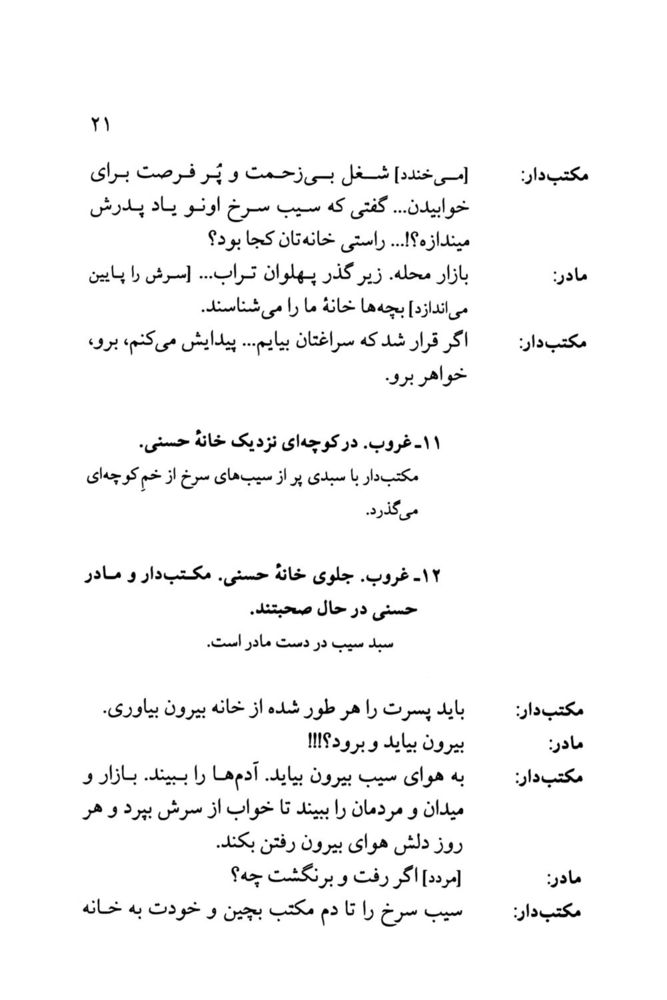 ۲۱
مکتب‌دار: [می‌خندد] شغل بی‌زحمت و پُر فرصت برای
خوابیدن... گفتی که سیب سرخ اونو یاد پدرش
میندازه؟!... راستی خانه‌تان کجا بود؟
مادر: بازار محله. زیر گذر پهلوان تراب... [سرش را پایین
می‌اندازد] بچه‌ها خانهٔ ما را می‌شناسند.
مکتب‌دار: اگر قرار شد که سراغتان بیایم... پیدایش می‌کنم، برو،
خواهر برو.
۱۱ـ غروب. در کوچه‌ای نزدیک خانهٔ حسنی.
مکتب‌دار با سبدی پر از سیب‌های سرخ از خمِ کوچه‌ای
می‌گذرد.
۱۲ـ غروب. جلوی خانهٔ حسنی. مکتب‌دار و مادر
حسنی در حال صحبتند.
سبد سیب در دست مادر است.
مکتب‌دار: باید پسرت را هر طور شده از خانه بیرون بیاوری.
مادر: بیرون بیاید و برود؟!!!
مکتب‌دار: به هوای سیب بیرون بیاید. آدم‌ها را ببیند. بازار و
میدان و مردمان را ببیند تا خواب از سرش بپرد و هر
روز دلش هوای بیرون رفتن بکند.
مادر: [مردد] اگر رفت و برنگشت چه؟
مکتب‌دار: سیب سرخ را تا دم مکتب بچین و خودت به خانه